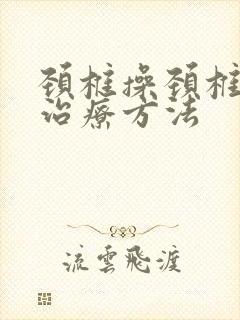 頚椎操頚椎
治療方法
流雲飛渡